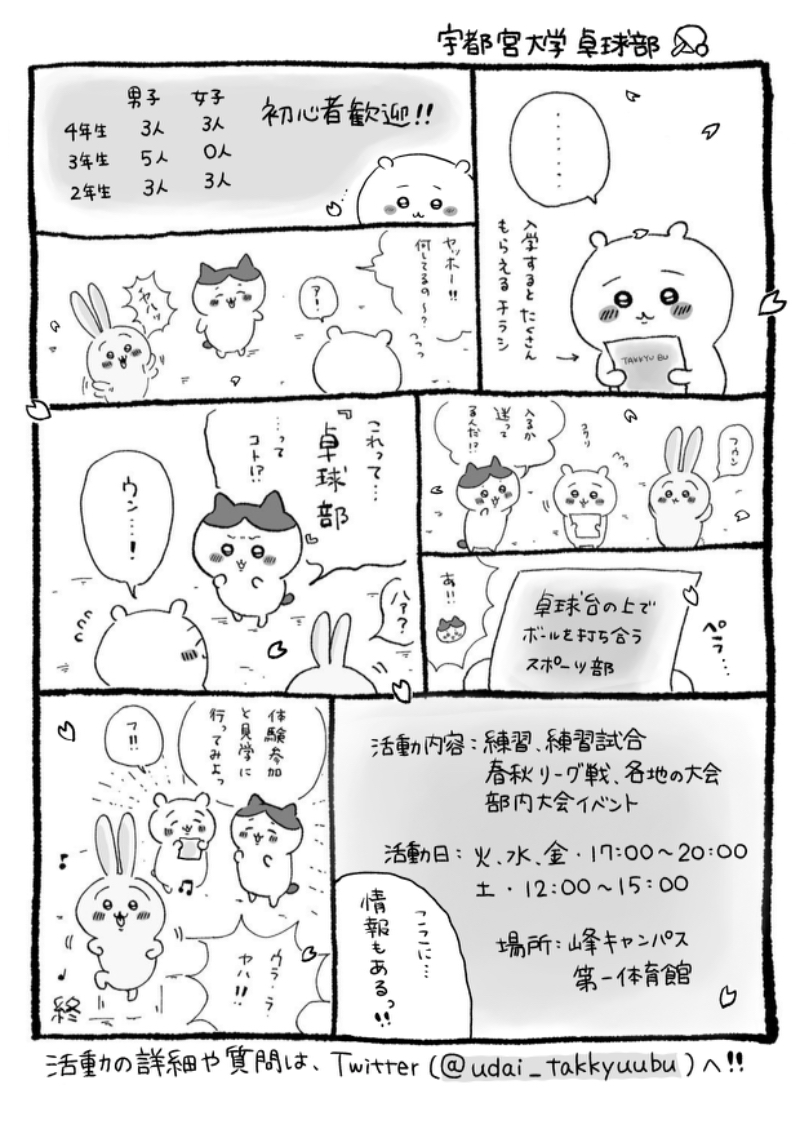 宇都宮大学 卓球部
‥‥‥‥
入学するとたくさん
もらえるチラシ
TAKKYU BU
男子 女子
4年生 3人 3人
3年生 5人 0人
2年生 3人 3人
初心者歓迎!!
ヤッホー!!
何してるの〜?
っっっ
ア!
ヤハッ
入るか
迷って
るんだ!?
コクリ
フウン
これって…
『卓球部
…って
コト!?
ウン…!
ハァ?
あ!!
卓球台の上で
ボールを打ち合う
スポーツ部
ペラ…
体験参加
と見学に
行ってみよっ
ワ!!
ウラ・ラ
ヤハ!!
終
活動内容:練習、練習試合
春秋リーグ戦、各地の大会
部内大会イベント
活動日:火、水、金・17:00〜20:00
土・12:00〜15:00
場所:峰キャンパス
第一体育館
ここに…
情報もあるっ!!
活動の詳細や質問は、Twitter(@udai_takkyuubu)へ!!